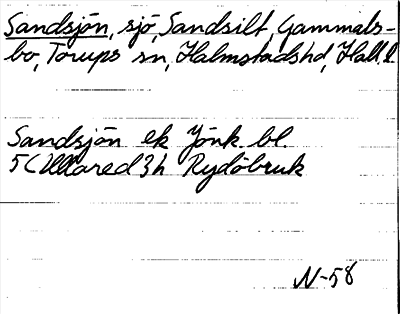 Sandsjön, sjö, Sandsilt, Gammals-
bo, Torups sn, Halmstadshd, Hall. l.
Sandsjön ek Jönk. bl.
5C Ullared 3h Rydöbruk
N-58